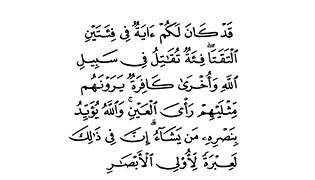 قَدْ كَانَ لَكُمْ ءَايَةٌ فِى فِئَتَيْنِ
الْتَقَتَا ۖ فِئَةٌ تُقَـٰتِلُ فِى سَبِيلِ
اللَّهِ وَأُخْرَىٰ كَافِرَةٌ يَرَوْنَهُم
مِّثْلَيْهِمْ رَأْىَ الْعَيْنِ ۚ وَاللَّهُ يُؤَيِّدُ
بِنَصْرِهِۦ مَن يَشَآءُ ۗ إِنَّ فِى ذَٰلِكَ
لَعِبْرَةً لِّأُو۟لِى الْأَبْصَـٰرِ